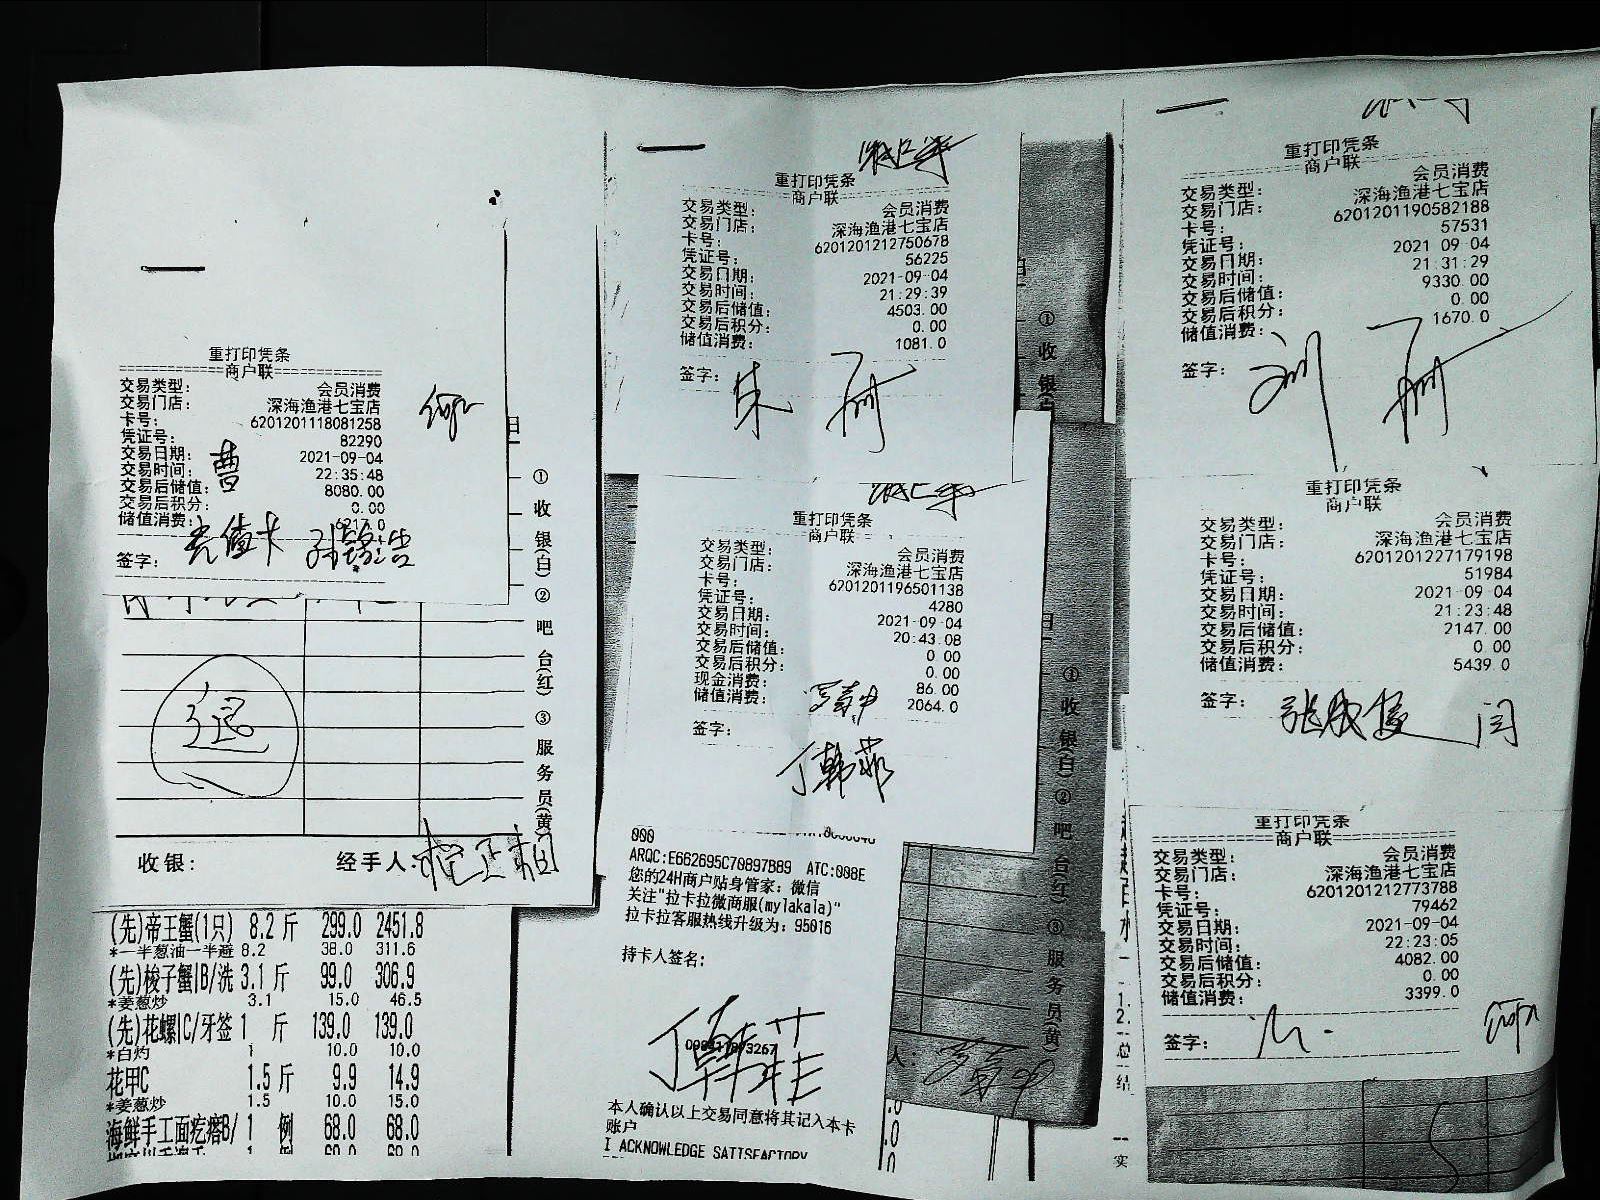 重打印凭条
商户联
交易类型: 会员消费
交易门店: 深海渔港七宝店
卡号: 6201201118081258
凭证号: 82290
交易日期: 2021-09-04
交易时间: 22:35:48
交易后储值: 8080.00
交易后积分: 0.00
储值消费: 6217.0
曹
充值卡
签字:
退
收银:
经手人:
①收银(白)②吧台(红)③服务员(黄)
(先)帝王蟹(1只) 8.2 斤 299.0 2451.8
*一半葱油一半避 8.2 38.0 311.6
(先)梭子蟹|B/洗 3.1 斤 99.0 306.9
*姜葱炒 3.1 15.0 46.5
(先)花螺|C/牙签 1 斤 139.0 139.0
*白灼 1 10.0 10.0
花甲C 1.5 斤 9.9 14.9
*姜葱炒 1.5 10.0 15.0
海鲜手工面疙瘩B/ 1 例 68.0 68.0
重打印凭条
商户联
交易类型: 会员消费
交易门店: 深海渔港七宝店
卡号: 6201201212750678
凭证号: 56225
交易日期: 2021-09-04
交易时间: 21:29:39
交易后储值: 4503.00
交易后积分: 0.00
储值消费: 1081.0
签字: 朱
①收银(白
重打印凭条
商户联
交易类型: 会员消费
交易门店: 深海渔港七宝店
卡号: 6201201196501138
凭证号: 4280
交易日期: 2021-09-04
交易时间: 20:43:08
交易后储值: 0.00
交易后积分: 0.00
现金消费: 86.00
储值消费: 2064.0
签字:
丁韩菲
①收银(白)②吧台(红)③服务员(黄)
000
ARQC:E662695C70897B89 ATC:008E
您的24H商户贴身管家: 微信
关注"拉卡拉微商服(mylakala)"
拉卡拉客服热线升级为: 95016
持卡人签名:
丁韩菲
本人确认以上交易同意将其记入本卡
账户
I ACKNOWLEDGE SATISFACTORY
重打印凭条
商户联
交易类型: 会员消费
交易门店: 深海渔港七宝店
卡号: 6201201190582188
凭证号: 57531
交易日期: 2021 09 04
交易时间: 21:31:29
交易后储值: 9330.00
交易后积分: 0.00
储值消费: 1670.0
签字: 刘
重打印凭条
商户联
交易类型: 会员消费
交易门店: 深海渔港七宝店
卡号: 6201201227179198
凭证号: 51984
交易日期: 2021-09-04
交易时间: 21:23:48
交易后储值: 2147.00
交易后积分: 0.00
储值消费: 5439.0
签字: 闫
重打印凭条
商户联
交易类型: 会员消费
交易门店: 深海渔港七宝店
卡号: 6201201212773788
凭证号: 79462
交易日期: 2021-09-04
交易时间: 22:23:05
交易后储值: 4082.00
交易后积分: 0.00
储值消费: 3399.0
签字: